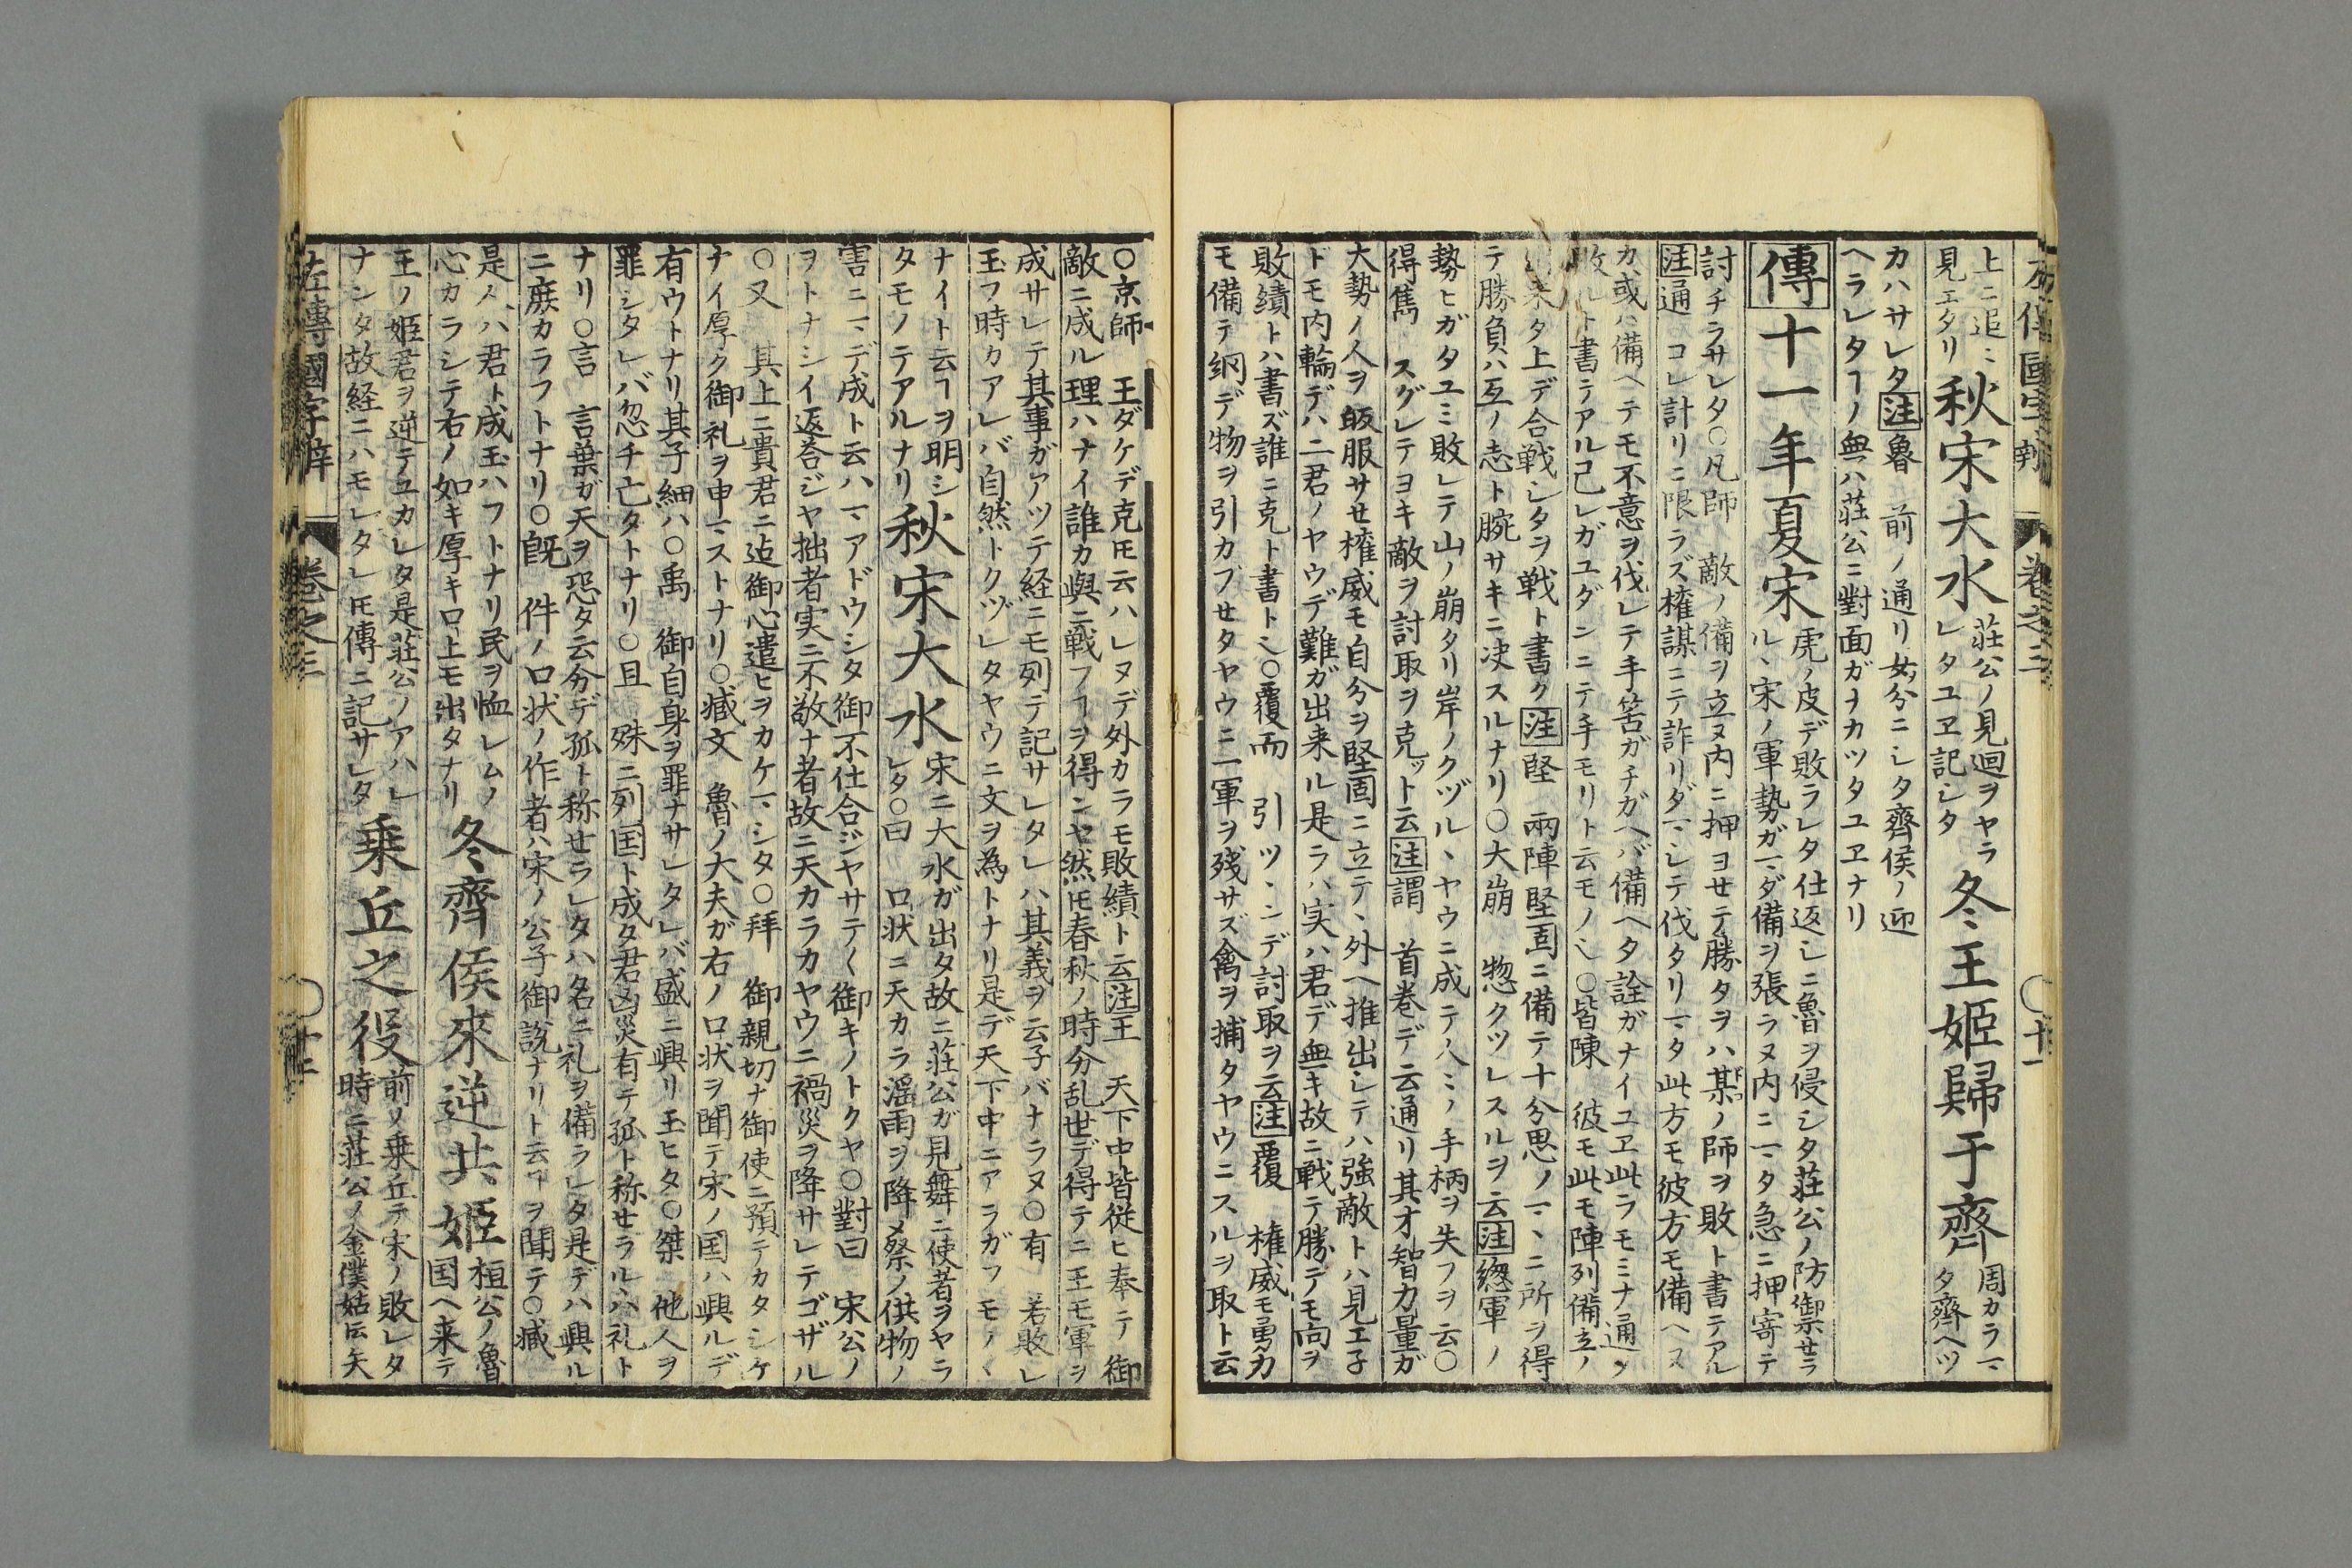 左傳國字辯 巻之三 〇十一
上ニ追ニ
見エタリ
秋宋大水
荘公ノ見廻ヲヤラ
レタユヱ記シタ
冬王姫歸于齊
周カラマ
タ齊ヘツ
カハサレタ注魯 前ノ通リ女分ニシタ齊侯ノ迎
ヘラレタヿノ無ハ荘公ニ對面ガナカツタユヱナリ
傳十一年夏宋
虎ノ皮デ敗ラレタ仕返シニ魯ヲ侵シタ荘公ノ防御禦セラ
ルヽ宋ノ軍勢ガマダ備ヲ張ラヌ内ニマタ急ニ押寄テ
討チラサレタ〇凡師 敵ノ備ヲ立ヌ内ニ押ヨセテ勝タヲハ某ノ師ヲ敗ト書テアル
注通 コレ計リニ限ラズ権謀ニテ詐リダマシテ伐タリマタ此方モ彼方モ備ヘヌ
カ或ハ備ヘテモ不意ヲ伐レテ手筈ガチガヘバ備ヘタ詮ガナイユヱ此ラモミナ通
敗ルト書テアル己レガユダンニテ手モリト云モノ〇皆陳 彼モ此モ陣列備立ノ
来タ上デ合戦シタヲ戦ト書ク注堅 兩陣堅固ニ備テ十分思ノマヽニ所ヲ得
テ勝負ハ互ノ志ト腕サキニ决スルナリ〇大崩 惣クツレスルヲ云注總軍ノ
勢ヒガタユミ敗レテ山ノ崩タリ岸ノクヅルヽヤウニ成テ人ニノ手柄ヲ失フヲ云〇
得雋 スグレテヨキ敵ヲ討取ヲ克ット云注謂 首巻デ云通リ其才智力量ガ
大勢ノ人ヲ皈服サセ権威モ自分ヲ堅固ニ立テヽ外ヘ推出シテハ強敵トハ見エ子
ドモ内輪デハ二君ノヤウデ難ガ出来ル是ラハ実ハ君デ無キ故ニ戦テ勝デモ向ヲ
敗績トハ書ズ誰ニ克ト書ト〇覆而 引ツヽンデ討取ヲ云注覆 権威モ勇力
モ備テ網デ物ヲ引カブセタヤウニ一軍ヲ残サズ禽ヲ捕タヤウニスルヲ取ト云
〇京師 王ダケデ克ト𪜈云ハレヌデ外カラモ敗績ト云注王 天下中皆従ヒ奉テ御
敵ニ成ル理ハナイ誰カ與ニ戦フヿヲ得ンヤ然𪜈春秋ノ時分乱世デ得テニ王モ軍ヲ
成サレテ其事ガアツテ経ニモ列テ記サレタレハ其義ヲ云子バナラヌ〇有 若敗レ
玉フ時カアレバ自然トクヅレタヤウニ文ヲ為トナリ是デ天下中ニアラガフモノヽ
ナイト云ヿヲ明シ
タモノテアルナリ
秋宋大水
宋ニ大水ガ出タ故ニ荘公ガ見舞ニ使者ヲヤラ
レタ〇曰 口状ニ天カラ滛雨ヲ降メ祭ノ供物ノ
害ニマデ成ト云ハマアドウシタ御不仕合ジヤサテ〱御キノトクヤ〇對曰 宋公ノ
ヲトナシイ返荅ジヤ拙者実ニ不敬ナ者故ニ天カラカヤウニ禍災ヲ降サレテゴザル
〇又 其上ニ貴君ニ迠御心遣ヒヲカケマシタ〇拜 御親切ナ御使ニ預テカタシケ
ナイ厚ク御礼ヲ申マストナリ〇臧文 魯ノ大夫ガ右ノ口状ヲ聞テ宋ノ国ハ興ルデ
有ウトナリ其子細ハ〇禹 御自身ヲ罪ナサレタレバ盛ニ興リ玉ヒタ〇桀 他人ヲ
罪シタレバ忽チ亡タトナリ〇且 殊ニ列国ト成タ君凶災有テ孤ト称セラルハ礼ト
ナリ〇言 言葉ガ天ヲ恐タ云分デ孤ト称セラレタハ名ニ礼ヲ備ラレタ是デハ興ル
ニ庶カラフトナリ〇旣 件ノ口状ノ作者ハ宋ノ公子御說ナリト云ヿヲ聞テ〇臧
是人ハ君ト成玉ハフトナリ民ヲ恤レムノ
心カラシテ右ノ如キ厚キ口上モ出タナリ
冬齊侯來逆共姫
桓公ノ魯
国ヘ来テ
王ノ姫君ヲ逆テユカレタ是荘公ノアハレ
ナンタ故経ニハモレタレ𪜈傳ニ記サレタ
乗丘之役
前ノ乗丘テ宋ノ敗レタ
時ニ荘公ノ金僕姑ト云矢
左傳國字辯 巻之三 〇十二